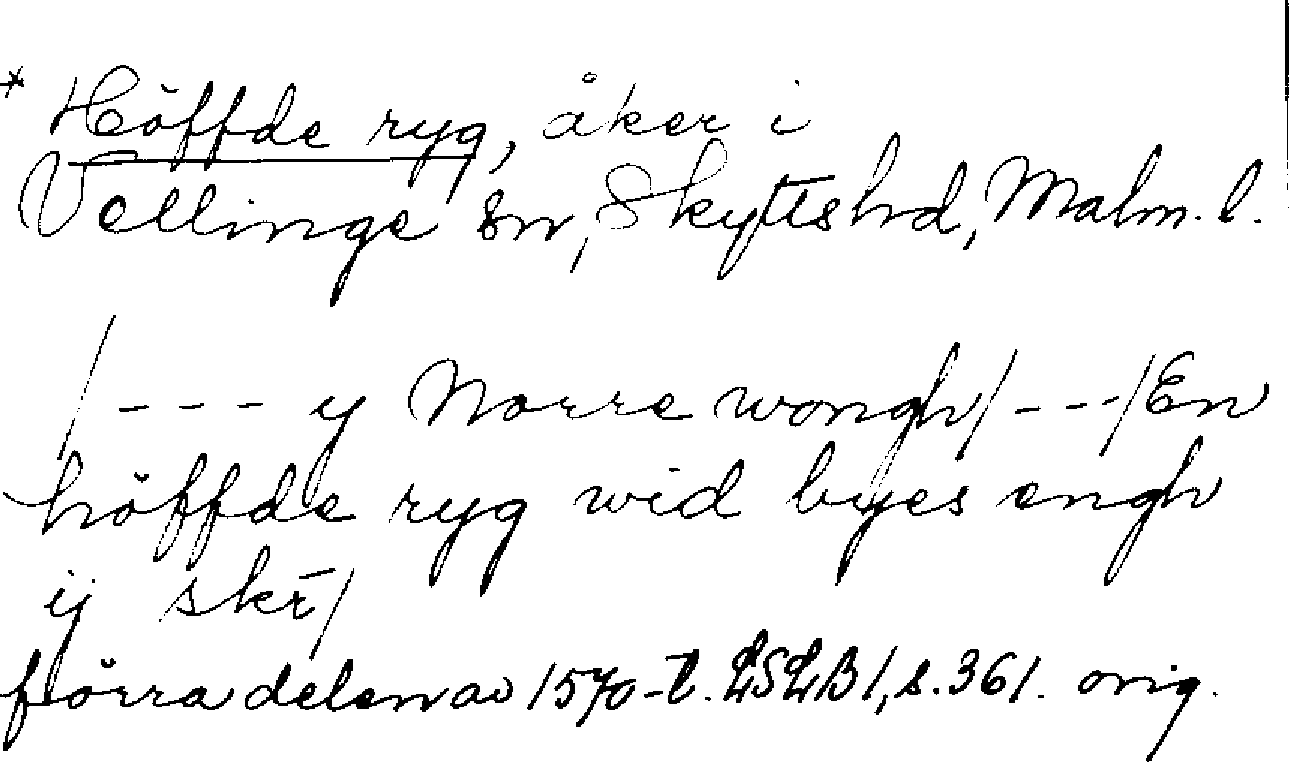 * Höffde ryg, åker i
Vellinge sn, Skytts hd, Malm. l.
/--- y Norre wongh/---/En
höffde ryg wid byes engh
ij skr̄/
förra delen av 1570-t. LSLB1, s.361. orig.